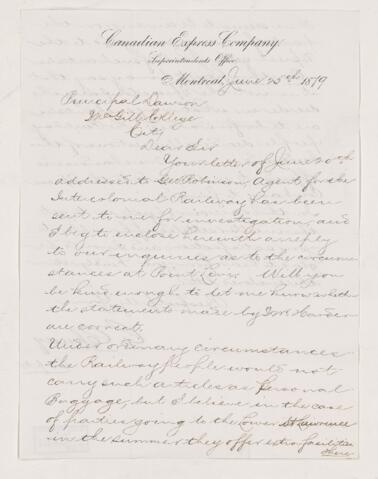 Canadian Express Company.
Superintendents Office
Montreal, June 25th 1879
Principal Dawson
McGill College
City
Dear Sir
Your letter of June 20th
addressed to Geo Robinson, Agent for the
Intercolonial Railway, has been
sent to me for investigation, and
I beg to enclose herewith a reply
to our inquiries as to the circum
stances at Point Levis. Will you
be kind enough to let me know whether
the statements made by Mr
are correct.
Under ordinary circumstances
the Railway People would not
carry such articles as personal
Baggage, but I believe in the case
of parties going to the Lower St Lawrence
in the summer they offer extra facilities
there